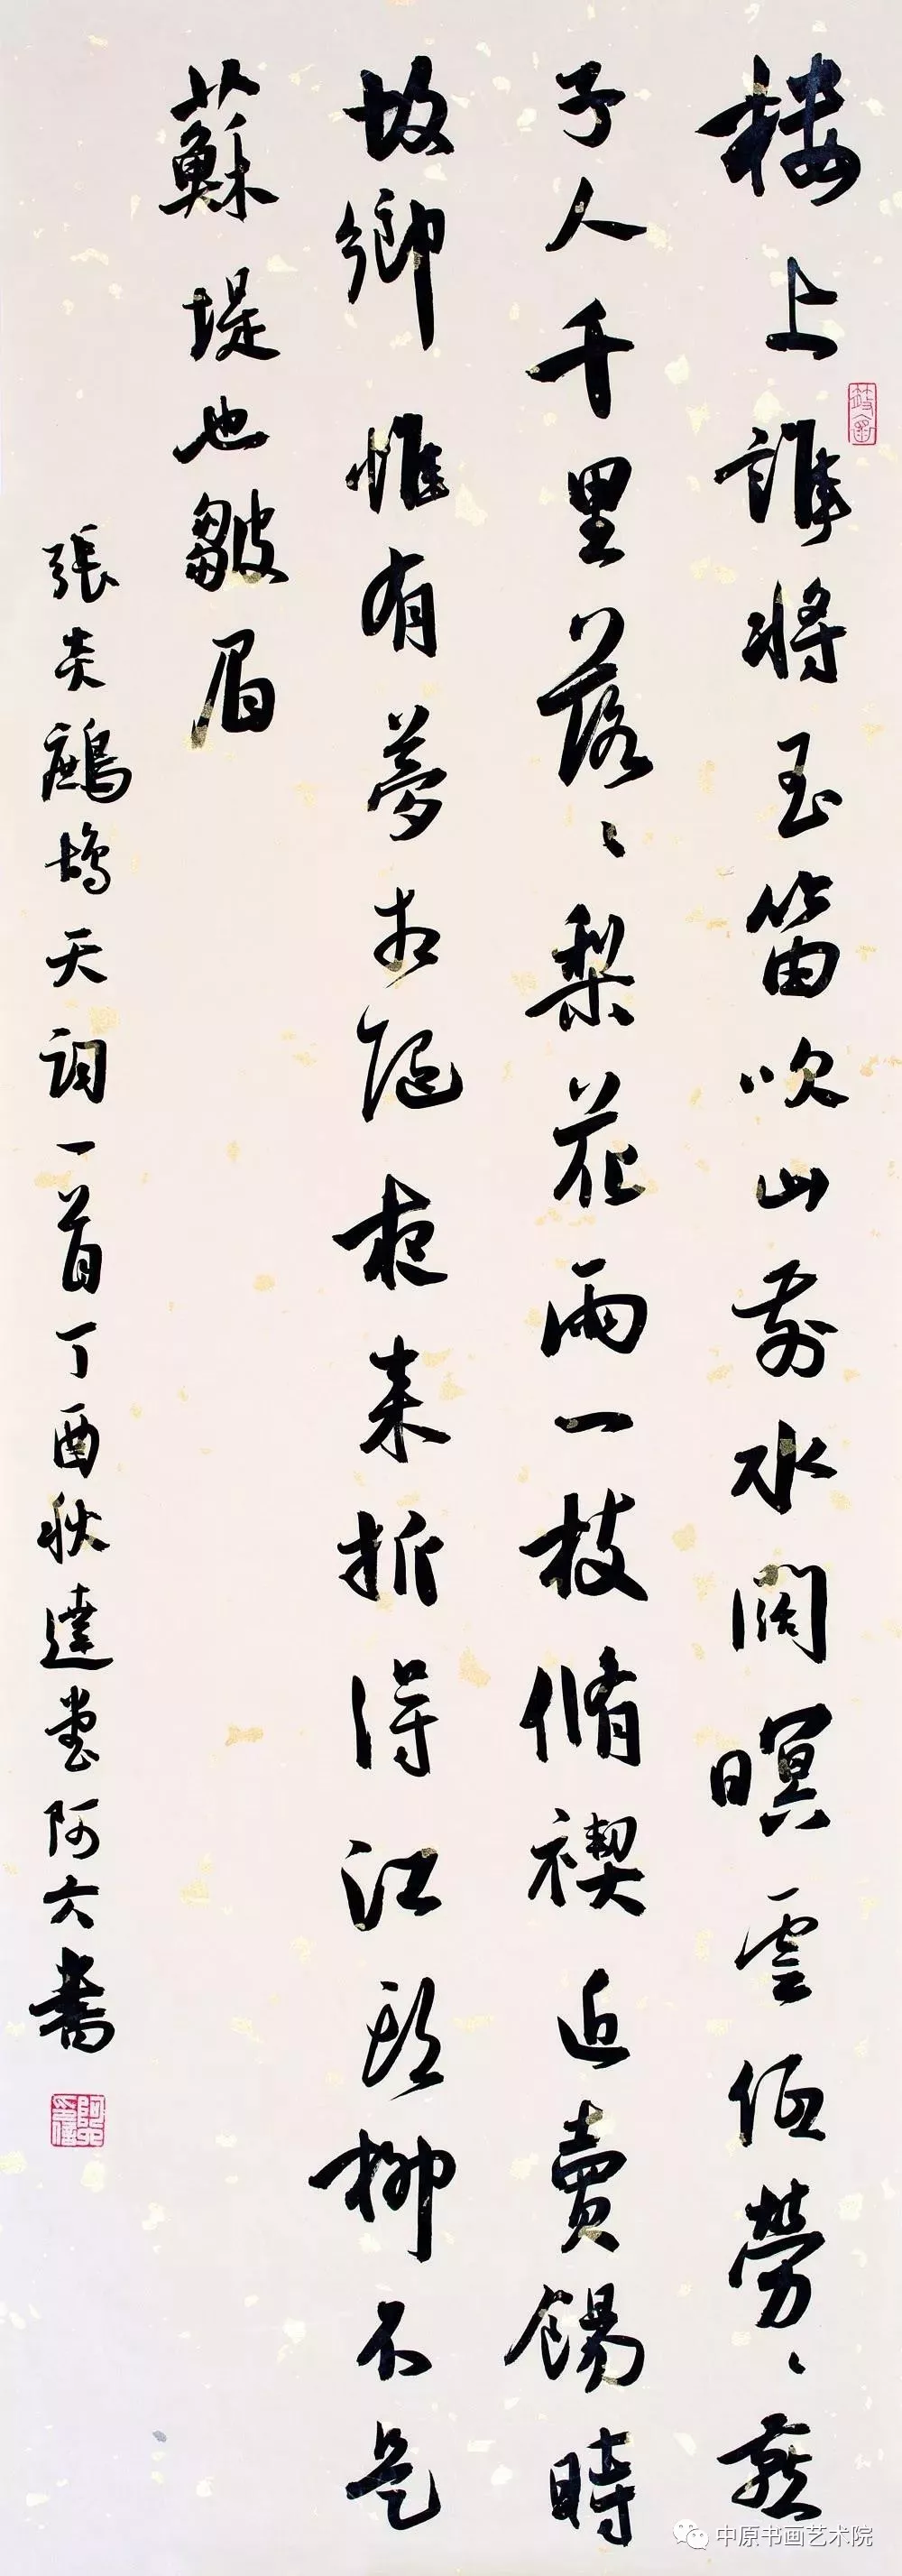 楼上誰將玉笛吹山前水闊暝雲低勞勞燕
子人千里落落梨花雨一枝脩禊近賣餳時
故鄉惟有夢相隨夜来折得江頭柳不是
蘇堤也皺眉
張炎鷓鴣天詞一首丁酉秋達堂阿六書
中原书画艺术院